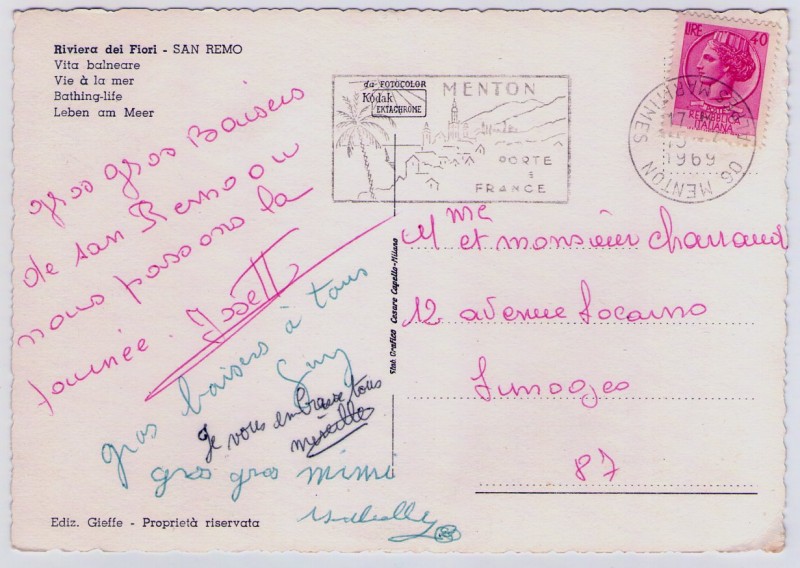 Riviera dei Fiori - SAN REMO
Vita balneare
Vie à la mer
Bathing-life
Leben am Meer
da FOTOCOLOR
Kodak
EKTACHROME
MENTON
PORTE
FRANCE
LIRE 40
REPVBBLICA
ITALIANA
06 MENTON
MARITIMES
1969
gros gros Baisers
de San Remo ou
nous passons la
journée. Josett
gros baisers à tous
Guy
Je vous embrasse tous
mireille
gros gros mimi
Mme et monsieur Charraud
12 avenue Locarno
Limoges
87
Stab. Grafico Cesare Capello-Milano
Ediz. Gieffe - Proprietà riservata